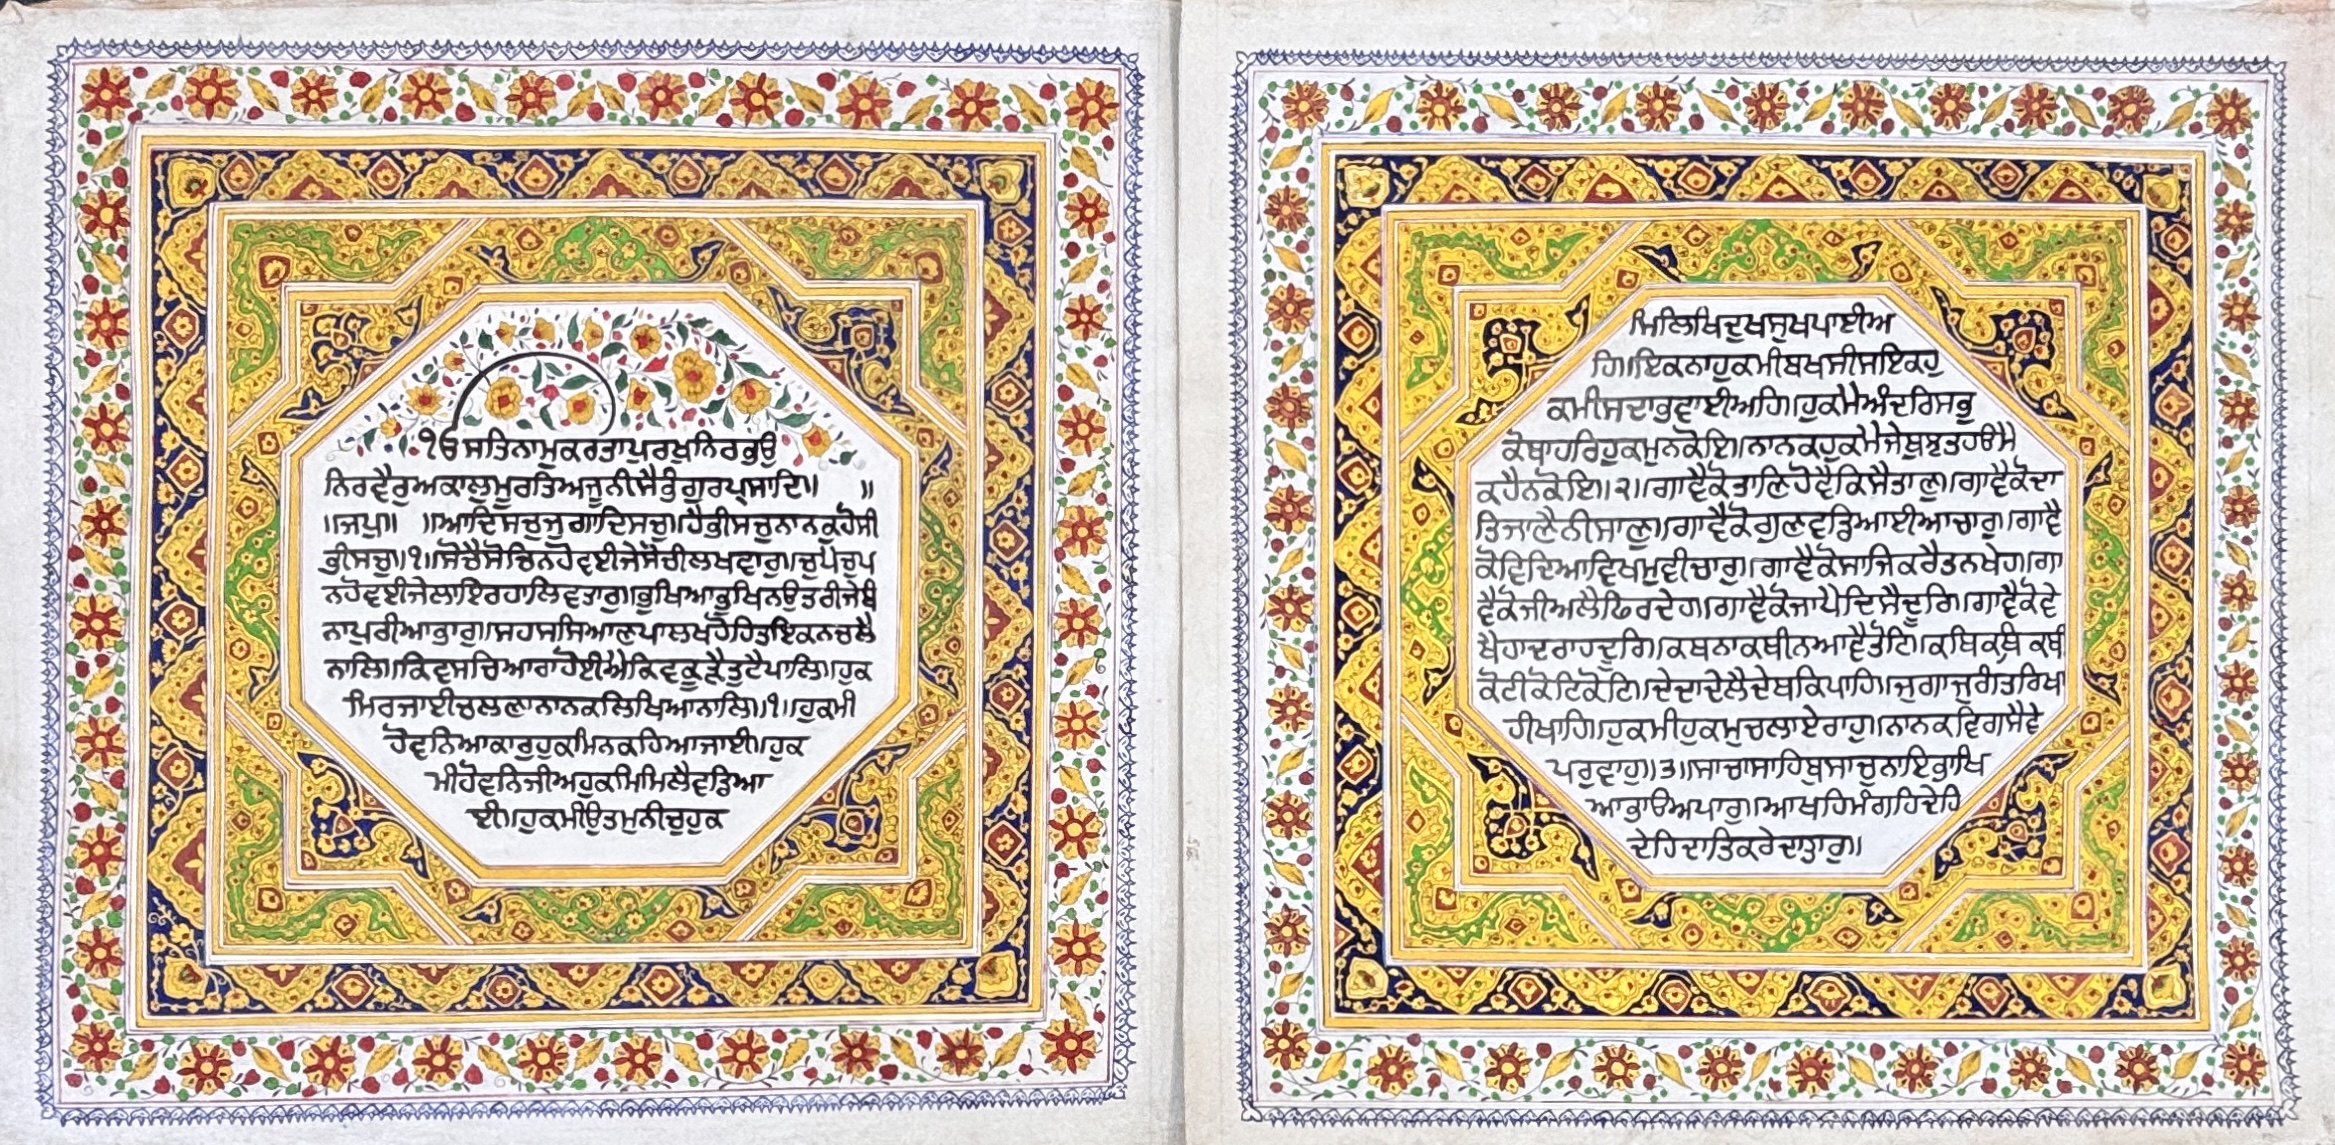 ੴਸਤਿਨਾਮੁਕਰਤਾਪੁਰਖੁਨਿਰਭਉ
ਨਿਰਵੈਰੁਅਕਾਲਮੂਰਤਿਅਜੂਨੀਸੈਭੰਗੁਰਪ੍ਰਸਾਦਿ॥ ॥
॥ਜਪੁ॥ ॥ਆਦਿਸਚੁਜੁਗਾਦਿਸਚੁ॥ਹੈਭੀਸਚੁਨਾਨਕਹੋਸੀ
ਭੀਸਚੁ॥੧॥ਸੋਚੈਸੋਚਿਨਹੋਵਈਜੇਸੋਚੀਲਖਵਾਰ॥ਚੁਪੈਚੁਪ
ਨਹੋਵਈਜੇਲਾਇਰਹਾਲਿਵਤਾਰ॥ਭੁਖਿਆਭੁਖਨਉਤਰੀਜੇਬੰ
ਨਾਪੁਰੀਆਭਾਰ॥ਸਹਸਸਿਆਣਪਾਲਖਹੋਹਿਤਇਕਨਚਲੈ
ਨਾਲਿ॥ਕਿਵਸਚਿਆਰਾਹੋਈਐਕਿਵਕੂੜੈਤੁਟੈਪਾਲਿ॥ਹੁਕ
ਮਿਰਜਾਈਚਲਣਾਨਾਨਕਲਿਖਿਆਨਾਲਿ॥੧॥ਹੁਕਮੀ
ਹੋਵਨਿਆਕਾਰਹੁਕਮਿਨਕਹਿਆਜਾਈ॥ਹੁਕ
ਮੀਹੋਵਨਿਜੀਅਹੁਕਮਿਮਿਲੈਵਡਿਆ
ਈ॥ਹੁਕਮੀਉਤਮੁਨੀਚੁਹੁਕ
ਮਿਲਿਖਿਦੁਖਸੁਖਪਾਈਅ
ਹਿ॥ਇਕਨਾਹੁਕਮੀਬਖਸੀਸਇਕਹੁ
ਕਮੀਸਦਾਭਵਾਈਅਹਿ॥ਹੁਕਮੈਅੰਦਰਿਸਭੁ
ਕੋਬਾਹਰਿਹੁਕਮਨਕੋਇ॥ਨਾਨਕਹੁਕਮੈਜੇਬੁਝੈਤਹਉਮੈ
ਕਹੈਨਕੋਇ॥੨॥ਗਾਵੈਕੋਤਾਣੁਹੋਵੈਕਿਸੈਤਾਣੁ॥ਗਾਵੈਕੋਦਾ
ਤਿਜਾਣੈਨੀਸਾਣੁ॥ਗਾਵੈਕੋਗੁਣਵਡਿਆਈਆਚਾਰ॥ਗਾਵੈ
ਕੋਵਿਦਿਆਵਿਖਮੁਵੀਚਾਰੁ॥ਗਾਵੈਕੋਸਾਜਿਕਰੇਤਨੁਖੇਹ॥ਗਾ
ਵੈਕੋਜੀਅਲੈਫਿਰਦੇਹ॥ਗਾਵੈਕੋਜਾਪੈਦਿਸੈਦੂਰਿ॥ਗਾਵੈਕੋਵੇ
ਖੈਹਾਦਰਾਹਦੂਰਿ॥ਕਥਨਾਕਥੀਨਆਵੈਤੋਟਿ॥ਕਥਿਕਥਿਕਥੀ
ਕੋਟੀਕੋਟਿਕੋਟਿ॥ਦੇਦਾਦੇਲੈਦੇਥਕਿਪਾਹਿ॥ਜੁਗਾਜੁਗੰਤਰਿਖਾ
ਹੀਖਾਹਿ॥ਹੁਕਮੀਹੁਕਮੁਚਲਾਏਰਾਹੁ॥ਨਾਨਕਵਿਗਸੈਵੇ
ਪਰੁਵਾਹੁ॥੩॥ਸਾਚਾਸਾਹਿਬੁਸਾਚੁਨਾਇਭਾਖਿ
ਆਭਾਉਅਪਾਰੁ॥ਆਖਹਿਮੰਗਹਿਦੇਹਿ
ਦੇਹਿਦਾਤਿਕਰੇਦਾਤਾਰੁ॥